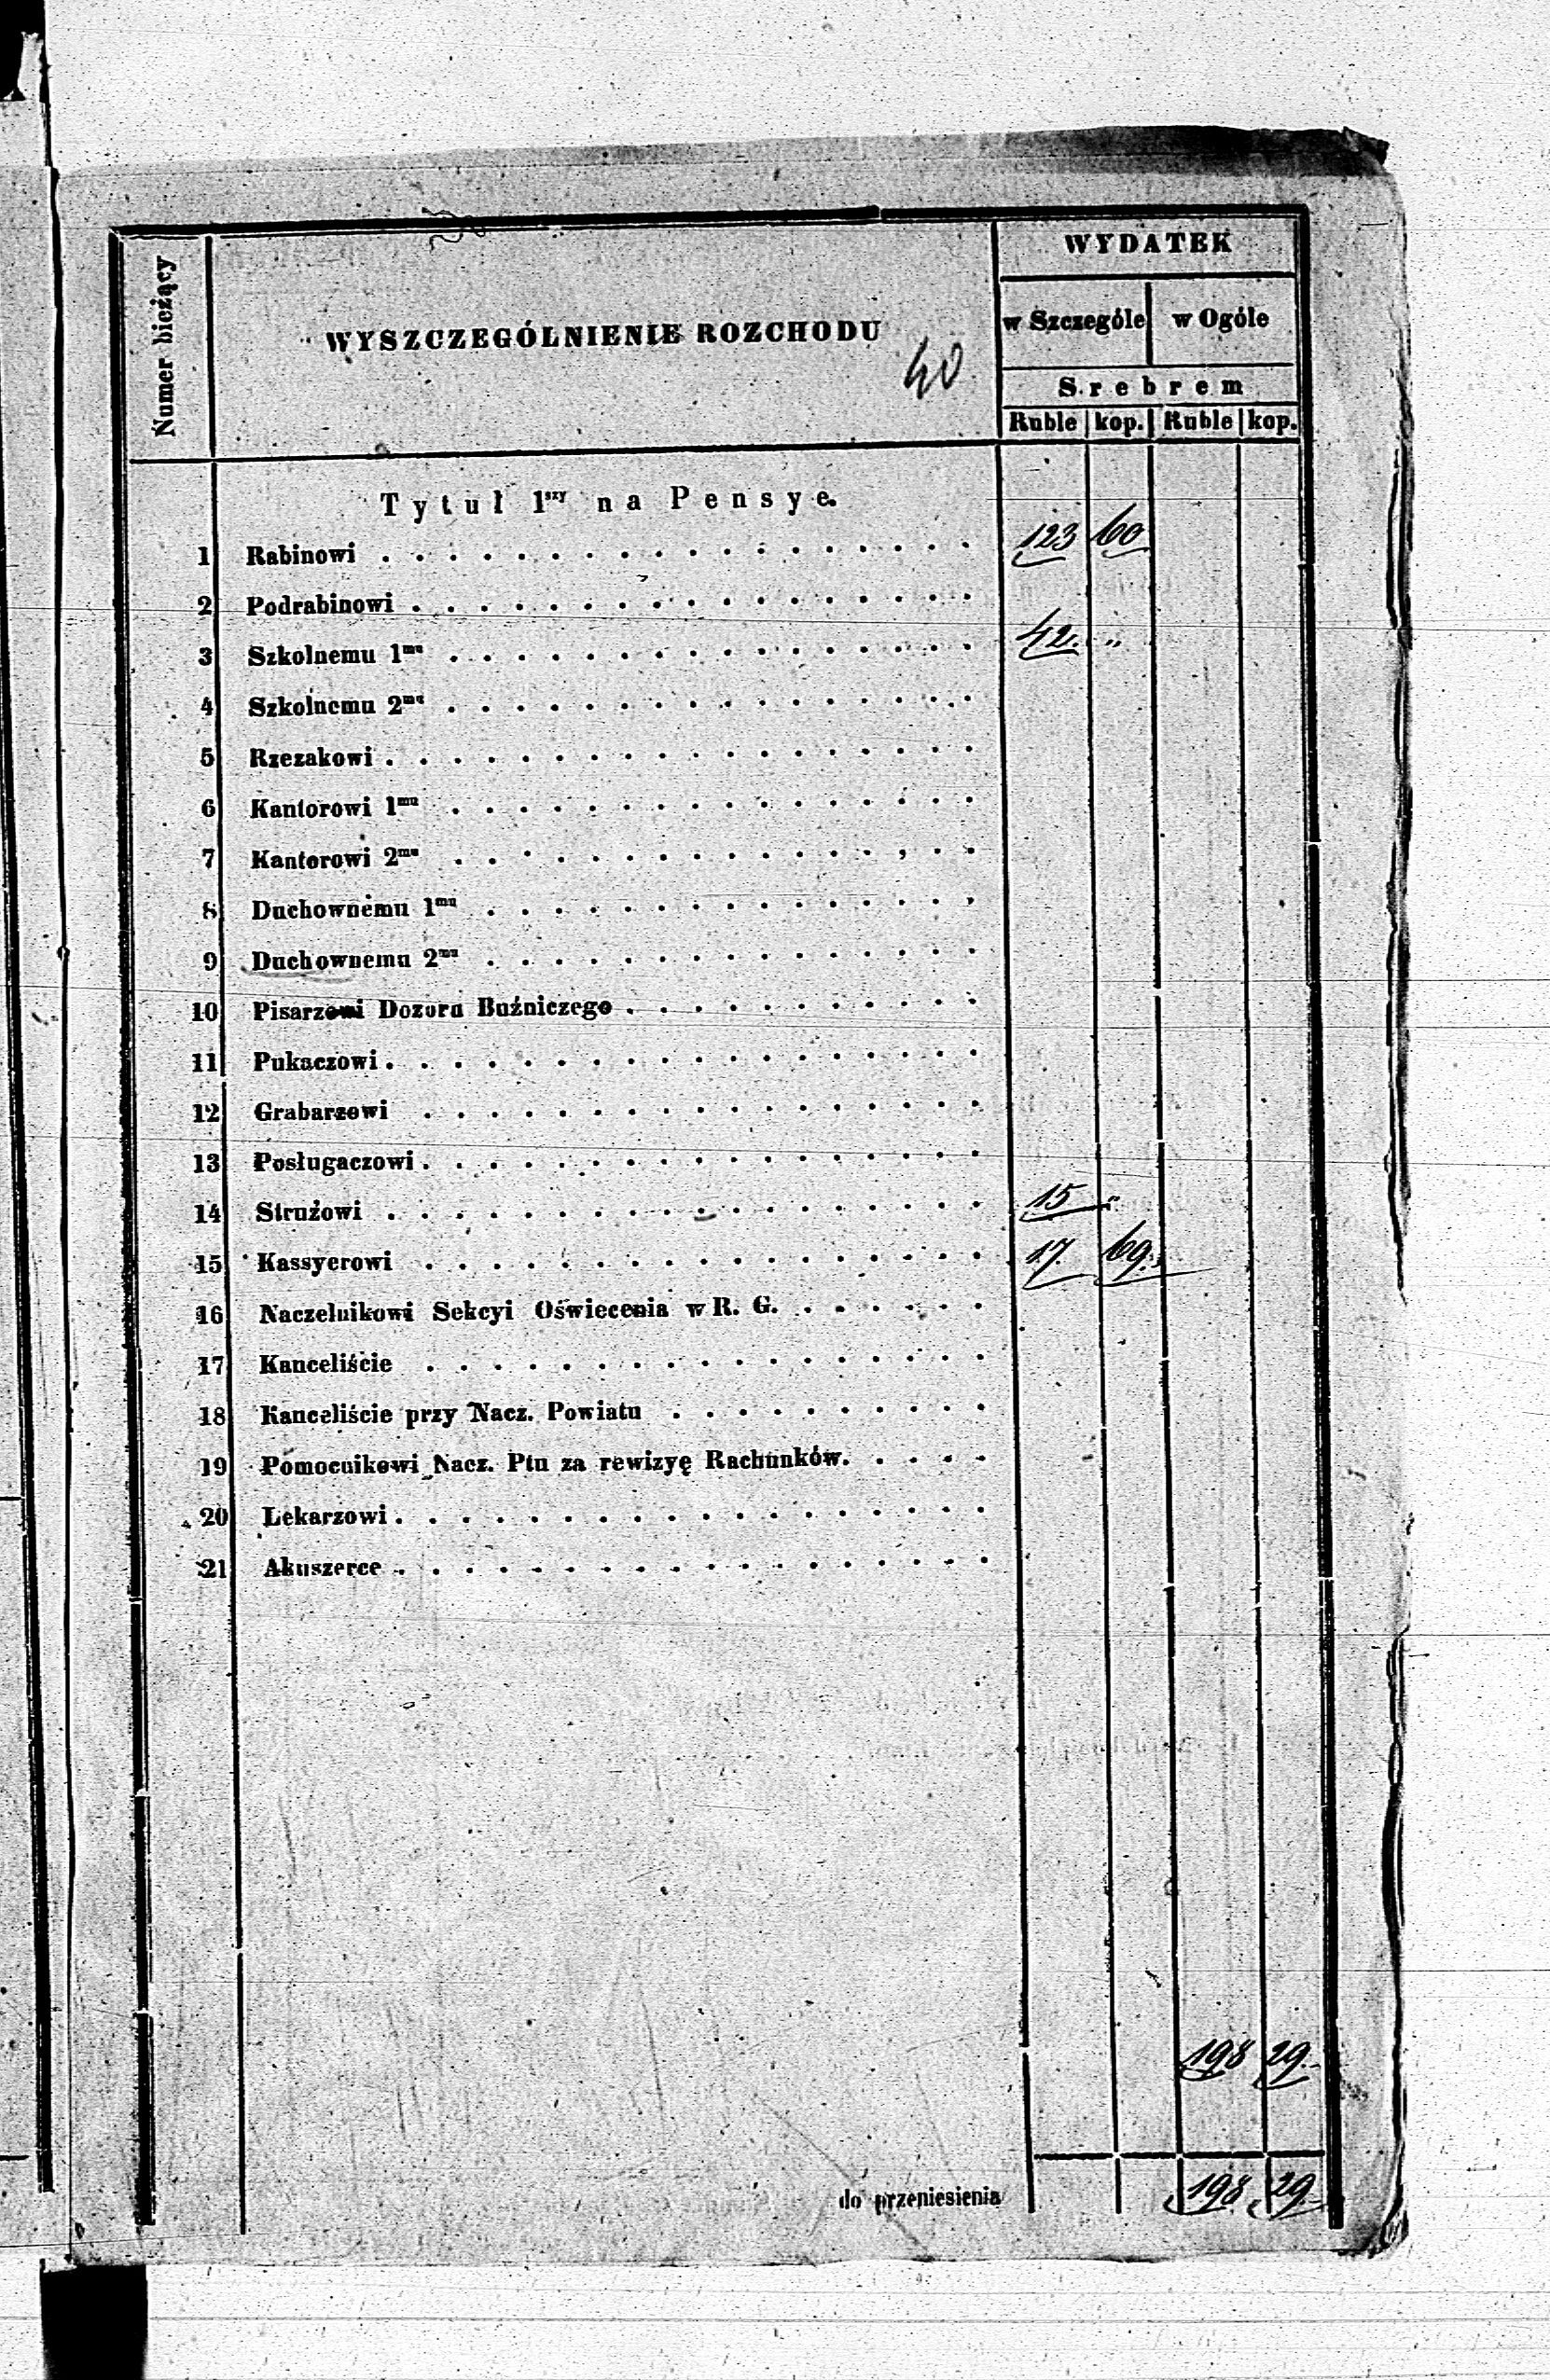 WYDATEK
Numer bieżący
WYSZCZEGÓLNIENIE ROZCHODU
w Szczególe w Ogóle
40
Srebrem
Ruble kop. Ruble kop.
Tytuł 1szy na Pensye.
1 Rabinowi . . . . . . . . . . . . . . . . . . 123 60
2 Podrabinowi . . . . . . . . . . . . . . . . .
3 Szkolnemu 1mu . . . . . . . . . . . . . . . . 42. "
4 Szkolnemu 2mu . . . . . . . . . . . . . . . .
5 Rzezakowi . . . . . . . . . . . . . . . . . .
6 Kantorowi 1mu . . . . . . . . . . . . . . . .
7 Kantorowi 2mu . . . . . . . . . . . . . . . .
8 Duchownemu 1mu . . . . . . . . . . . . . . .
9 Duchownemu 2mu . . . . . . . . . . . . . . .
10 Pisarzowi Dozoru Bóźniczego . . . . . . . . . . .
11 Pukaczowi . . . . . . . . . . . . . . . . . .
12 Grabarzowi . . . . . . . . . . . . . . . . .
13 Posługaczowi . . . . . . . . . . . . . . . . .
14 Strużowi . . . . . . . . . . . . . . . . . . 15 "
15 Kassyerowi . . . . . . . . . . . . . . . . . 17. 69.
16 Naczelnikowi Sekcyi Oświecenia w R. G. . . . . . .
17 Kanceliście . . . . . . . . . . . . . . . . .
18 Kanceliście przy Nacz. Powiatu . . . . . . . . . .
19 Pomocnikowi Nacz. Ptu za rewizyę Rachunków. . . . .
20 Lekarzowi . . . . . . . . . . . . . . . . . .
21 Akuszerce . . . . . . . . . . . . . . . . . .
198 29.
do przeniesienia 198 29.